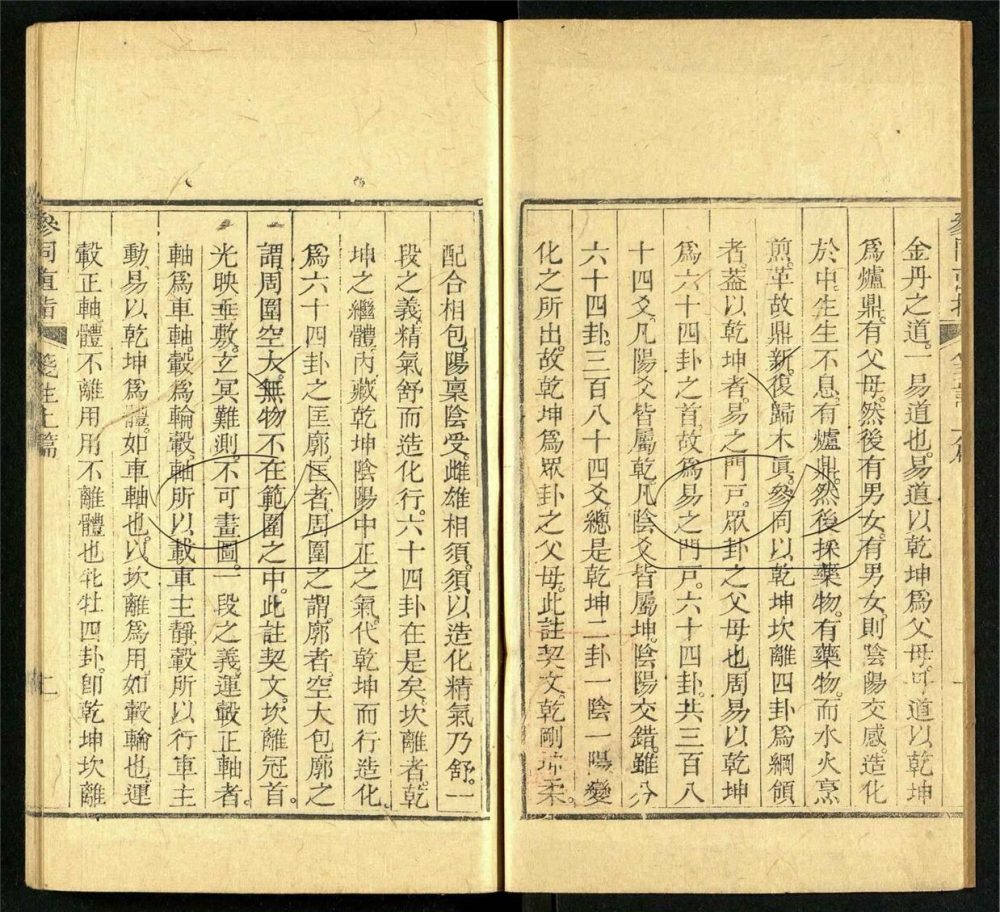 金丹之道。一易道也。易道以乾坤爲父母。丹道以乾坤
爲爐鼎。有父母。然後有男女。有男女。則陰陽交感。造化
於中。生生不息。有爐鼎。然後採藥物。有藥物。而水火烹
煎。革故鼎新。復歸本眞。參同以乾坤坎離四卦爲綱領
者。葢以乾坤者。易之門戸。眾卦之父母也周易以乾坤
爲六十四卦之首。故爲易之門戸。六十四卦。共三百八
十四爻。凡陽爻皆屬乾。凡陰爻皆屬坤。陰陽交錯。雖分
六十四卦。三百八十四爻。總是乾坤二卦一陰一陽變
化之所出。故乾坤爲眾卦之父母。此註契文。乾剛坤柔。
配合相包。陽稟陰受。雌雄相須。須以造化精氣乃舒。一
段之義。精氣舒而造化行。六十四卦在是矣。坎離者。乾
坤之繼體。內藏乾坤陰陽中正之氣。代乾坤而行造化。
爲六十四卦之匡廓。匡者。周圍之謂。廓者。空大包廓之
謂。周圍空大。無物不在範圍之中。此註契文。坎離冠首。
光映垂敷。玄冥難測。不可畫圖。一段之義。運轂正軸者。
軸爲車軸。轂爲輪轂。軸所以載車主靜。轂所以行車主
動。易以乾坤爲體。如車軸也。以坎離爲用。如轂輪也。運
轂正軸。體不離用。用不離體也牝牡四卦。卽乾坤坎離
參同直指
箋註上篇
二